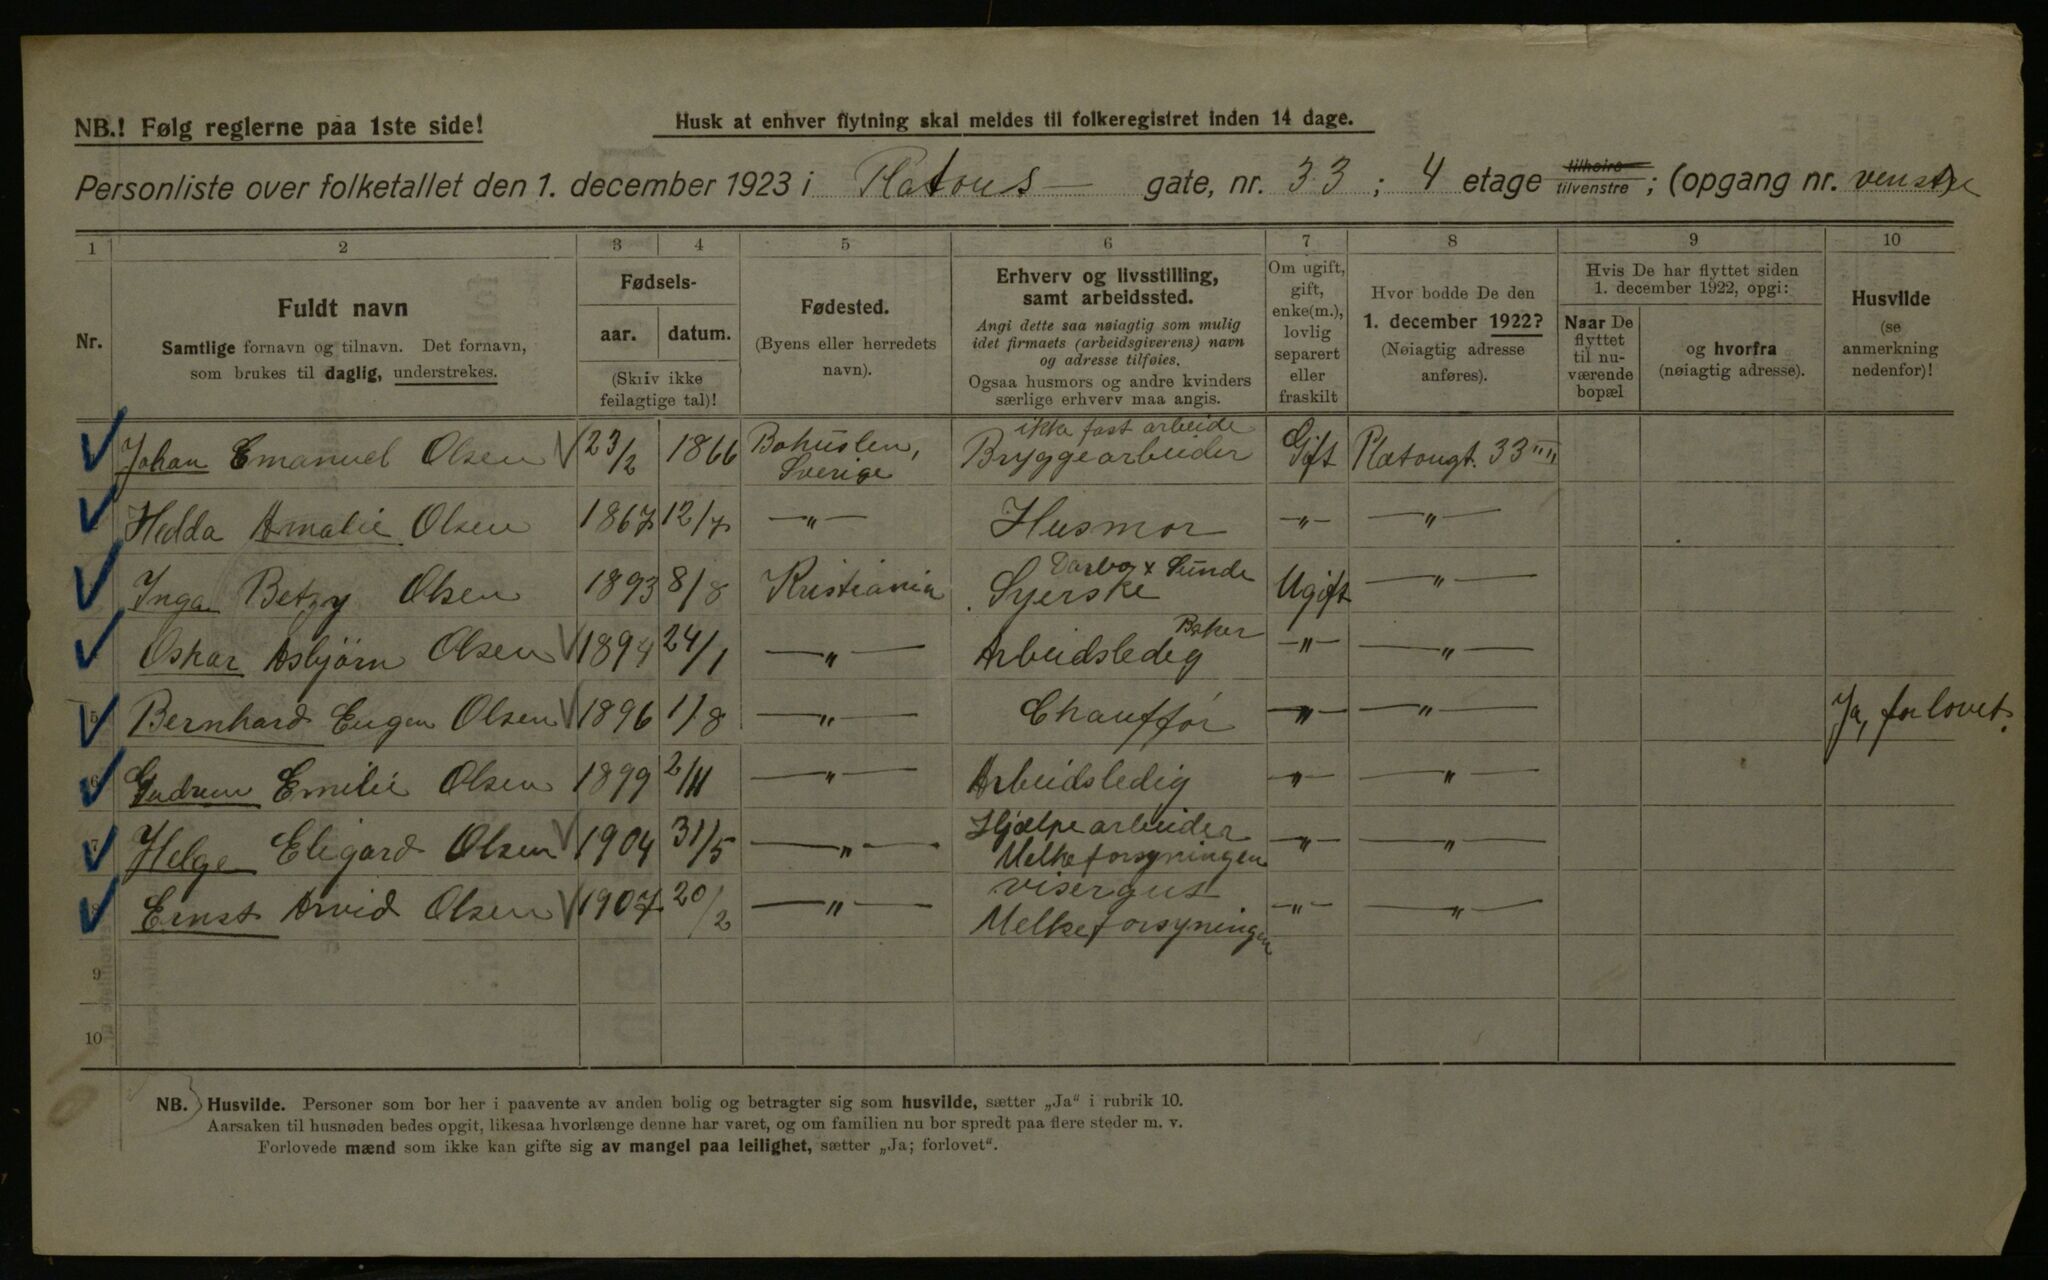 NB.! Følg reglerne paa 1ste side!
Husk at enhver flytning skal meldes til folkeregistret inden 14 dage.
Personliste over folketallet den 1. december 1923 i Platous gate, nr. 33 ; 4 etage tilhøire tilvenstre ; (opgang nr. venstre
1 2 3 4 5 6 7 8 9 10
Nr.
Fuldt navn
Samtlige fornavn og tilnavn. Det fornavn,
som brukes til daglig, understrekes.
Fødsels-
aar. datum.
(Skriv ikke
feilagtige tal)!
Fødested.
(Byens eller herredets
navn).
Erhverv og livsstilling,
samt arbeidssted.
Angi dette saa nøiagtig som mulig
idet firmaets (arbeidsgiverens) navn
og adresse tilføies.
Ogsaa husmors og andre kvinders
særlige erhverv maa angis.
Om ugift,
gift,
enke(m.),
lovlig
separert
eller
fraskilt
Hvor bodde De den
1. december 1922?
(Nøiagtig adresse
anføres).
Hvis De har flyttet siden
1. december 1922, opgi:
Naar De
flyttet
til nu-
værende
bopæl
og hvorfra
(nøiagtig adresse).
Husvilde
(se
anmerkning
nedenfor)!
ikke fast arbeide
Johan Emanuel Olsen 23/2 1866 Bohuslen, Sverige Bryggearbeider Gift Platougt. 33
Hedda Amalie Olsen 1867 12/7 — " — Husmor — " — — " —
Inga Betzy Olsen 1893 8/8 Kristiania Syerske Darbo x Sunde Ugift — " —
Oskar Asbjørn Olsen 1894 24/1 — " — Arbeidsledig Baker — " — — " —
5 Bernhard Eugen Olsen 1896 1/8 — " — Chauffør — " — — " — Ja, forlovet.
6 Gudrun Emilie Olsen 1899 2/11 — " — Arbeidsledig — " — — " —
7 Helge Eligard Olsen 1904 31/5 — " — Hjælpearbeider Melkeforsyningen — " — — " —
8 Ernst Arvid Olsen 1907 20/2 — " — visergut Melkeforsyningen — " — — " —
9
10
NB. Husvilde. Personer som bor her i paavente av anden bolig og betragter sig som husvilde, sætter „Ja" i rubrik 10.
Aarsaken til husnøden bedes opgit, likesaa hvorlænge denne har varet, og om familien nu bor spredt paa flere steder m. v.
Forlovede mænd som ikke kan gifte sig av mangel paa leilighet, sætter „Ja; forlovet".